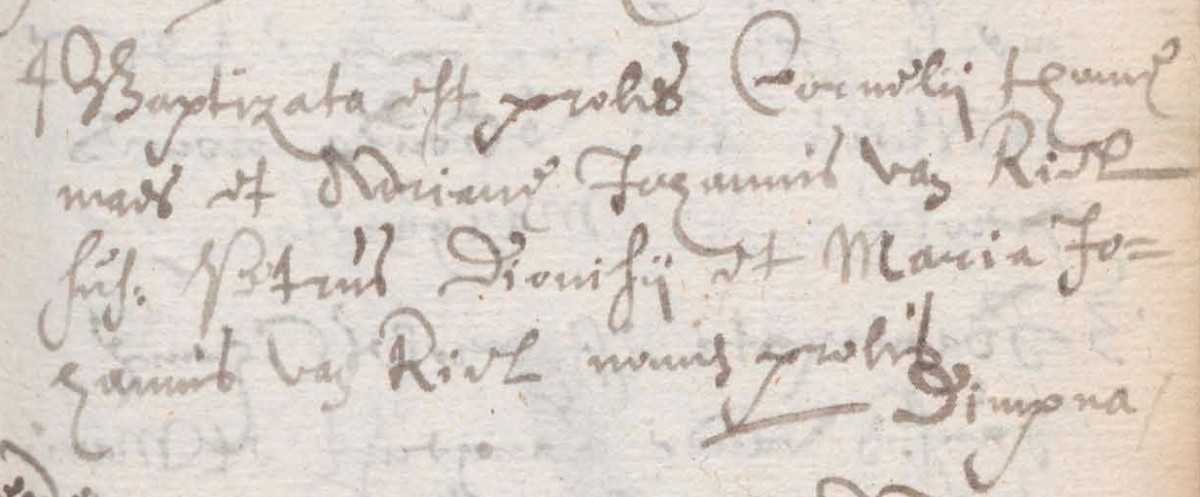 4 Baptizata est proles Cornelij
maes et Adrianę Johannis van Riel
susc. Petrus Dionisij et Maria Jo=
hannis van Riel nomen prolis
Dimpna